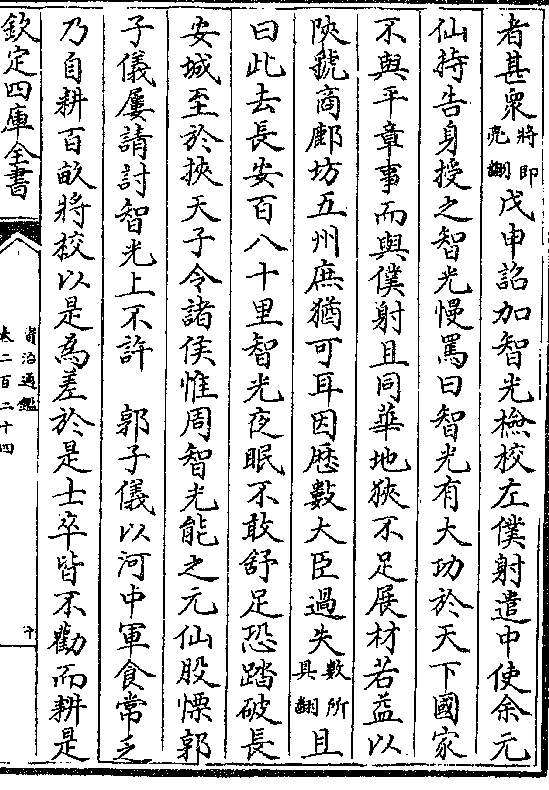 者甚衆將即亮翻戊申詔加智光檢校左僕射遣中使余元
仙持告身授之智光慢罵曰智光有大功於天下國家
不與平章事而與僕射且同華地狹不足展材若益以
陜虢商鄜坊五州庶猶可耳因厯數大臣過失數所具翻且
曰此去長安百八十里智光夜眠不敢舒足恐踏破長
安城至於挾天子令諸侯惟周智光能之元仙股慄郭
子儀屢請討智光上不許　郭子儀以河中軍食常乏
乃自耕百畝將校以是為差於是士卒皆不勸而耕是
欽定四庫全書
資治通鑑
卷二百二十四
十